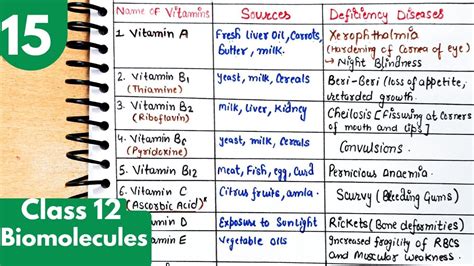 15
Name of Vitamins Sources Deficiency Diseases
1 Vitamin A Fresh liver Oil, Carrots, Xerophthalmia
Butter, milk. (Hardening of Cornea of eye)
→ Night Blindness
2. Vitamin B1 Yeast, milk, Cereals Beri-Beri (loss of appetite,
(Thiamine) retarded growth.
3. Vitamin B2 Milk, Liver, Kidney Cheilosis [Fissuring at corners
(Riboflavin) of mouth and lips]
4. Vitamin B6 yeast, milk, Cereals Convulsions.
(Pyridoxine)
5. Vitamin B12 Meat, Fish, egg, Curd Pernicious Anaemia.
6. Vitamin C Citrus fruits, amla. Scurvy (Bleeding Gums)
(Ascorbic Acid)*
Vitamin D Exposure to Sunlight Rickets (Bone deformities)
Vitamin E Vegetable oils Increased fragility of RBCS
and Muscular weakness.
Class 12
Biomolecules